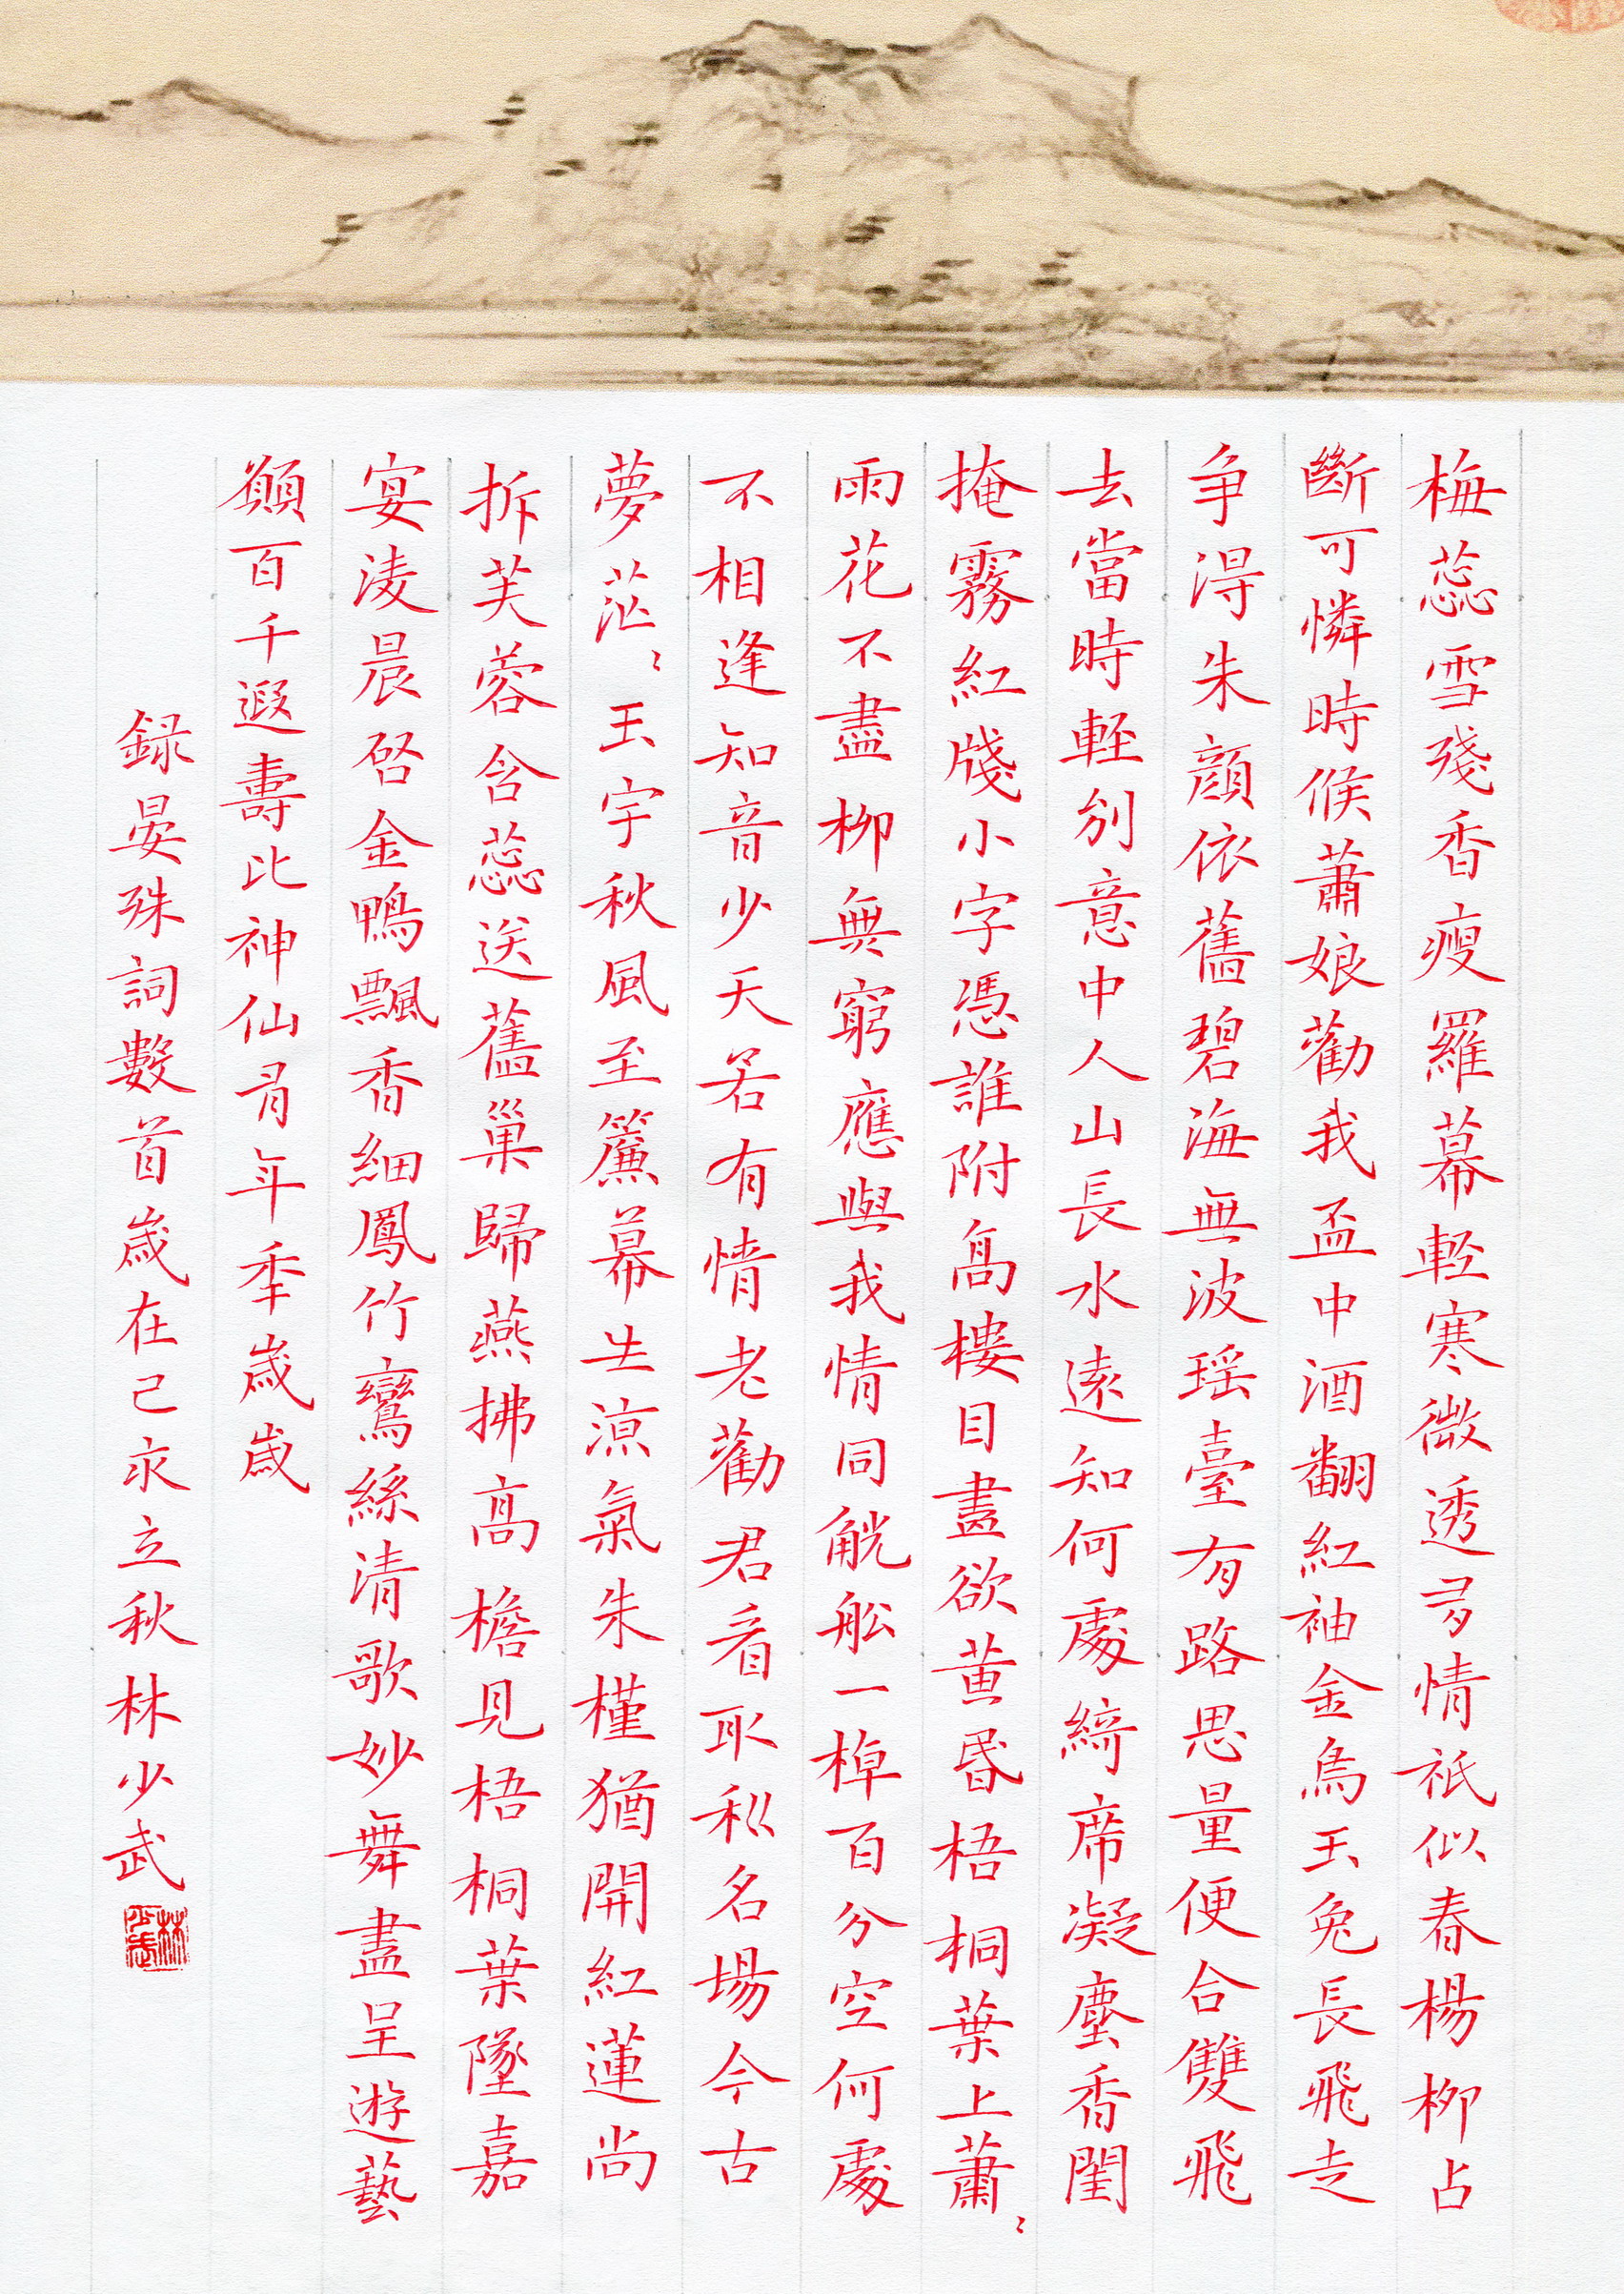 梅蕊雪殘香瘦羅幕輕寒微透多情祇似春楊柳占
斷可憐時候蕭娘勸我盃中酒翻紅袖金烏玉兔長飛走
争得朱顔依舊碧海無波瑶臺有路思量便合雙飛
去當時輕別意中人山長水遠知何處綺席凝塵香閨
掩霧紅牋小字憑誰附髙樓目盡欲黄昏梧桐葉上蕭〻
雨花不盡柳無窮應與我情同觥船一棹百分空何處
不相逢知音少天若有情老勸君看取利名場今古
夢茫〻玉宇秋風至簾幕生涼氣朱槿猶開紅蓮尚
拆芙蓉含蕊送舊巢歸燕拂高檐見梧桐葉墜嘉
宴淩晨啓金鴨飄香細鳳竹鸞絲清歌妙舞盡呈遊藝
願百千遐壽比神仙有年年歲歲
録晏殊詞數首歲在己亥立秋林少武
林少武